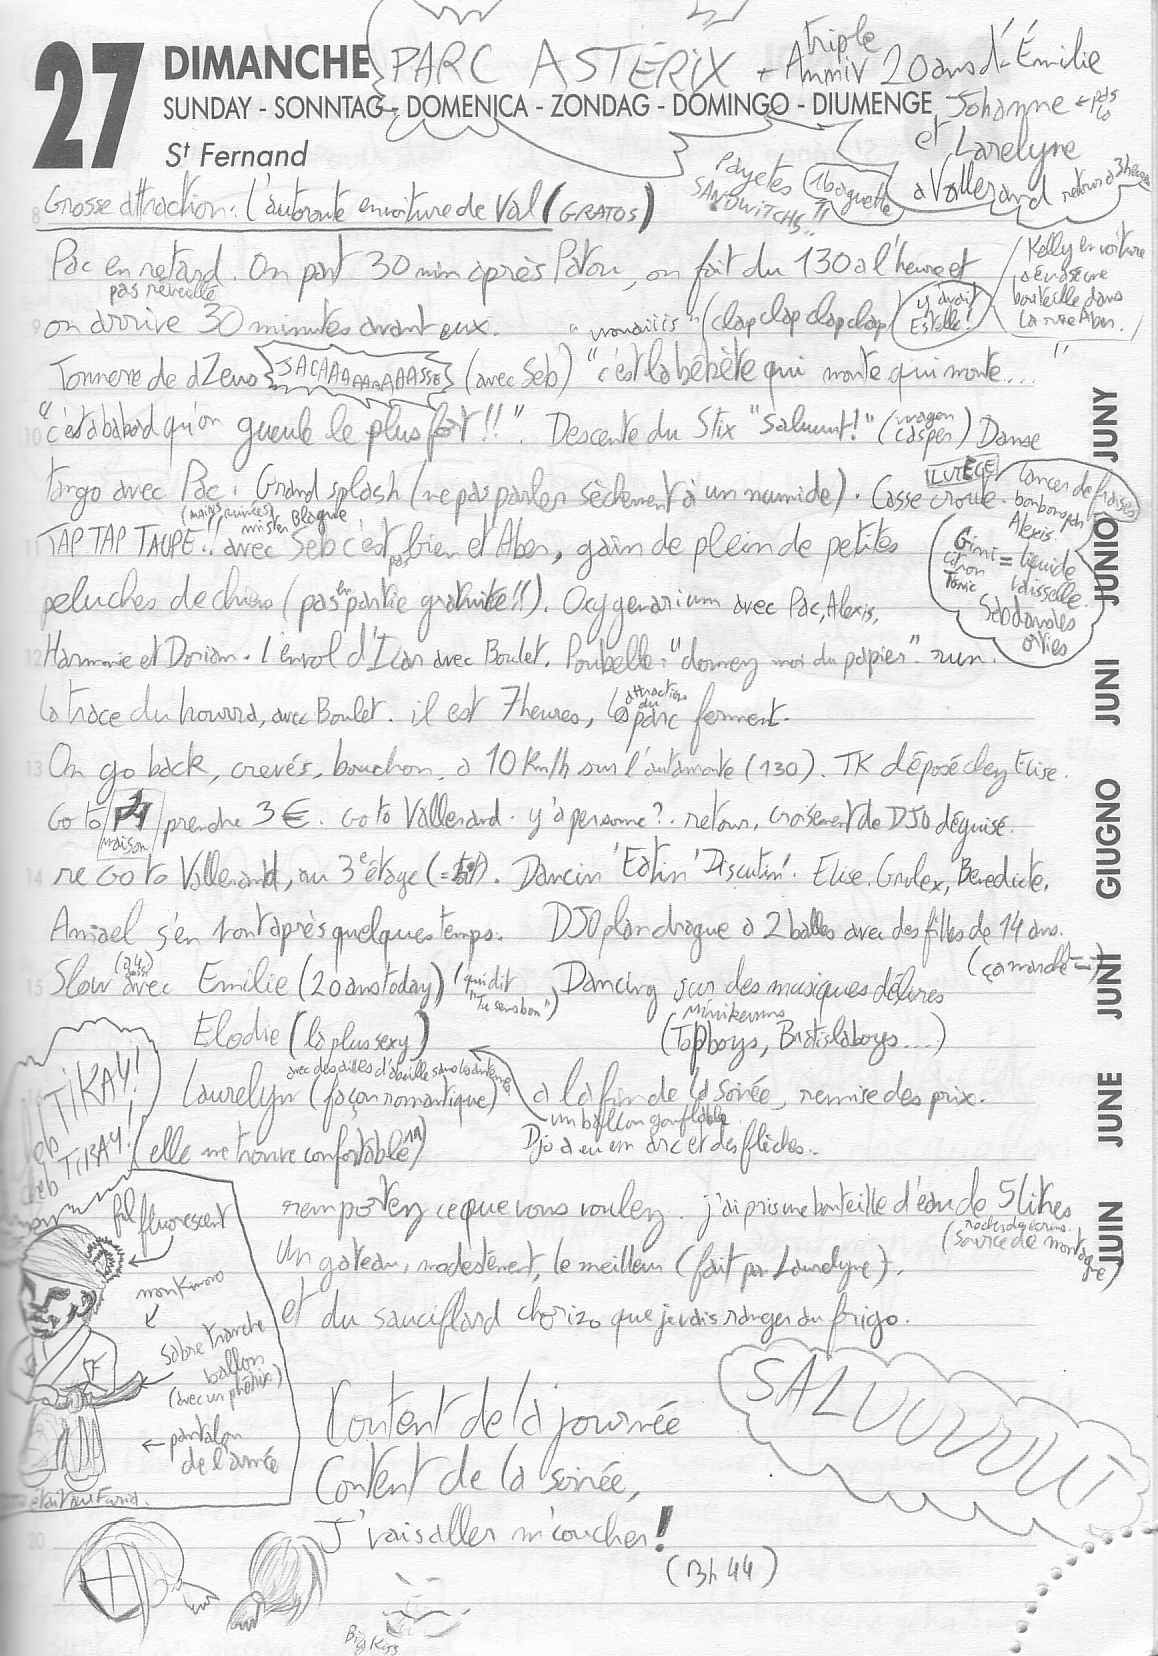 27 DIMANCHE PARC ASTÉRIX + triple Anniv 20 ans d'Émilie
SUNDAY - SONNTAG - DOMENICA - ZONDAG - DOMINGO - DIUMENGE
Johanne ← pas là
et Larelyne
St Fernand
à Vallerand retour à 3 heures
Payetes SANDWITCHS!! 1 baguette
8 Grosse attraction: l'autoroute en voiture de Val (GRATOS)
Pac en retard. On part 30 min après Patou, on fait du 130 à l'heure et
pas réveillé
Kelly en voiture a écrasé une bouteille dans la rue Aber.
9 on arrive 30 minutes avant eux. "vrouaiiis" (clap clap clap clap) y'avait Estelle!
Tonnerre de dZeus JACAAAAAAAAASSE (avec Seb) "c'est la bébête qui monte qui monte..."
10 "c'est à babord qu'on gueule le plus fort!!". Descente du Stix "Saluuut!" (wagon casper) Danse
tango avec Pac. Grand splash (ne pas parler sèchement à un numide). Casse croute.
LUTÈCE
lancer de fraises
Alexis!
Gini citron Tonic = liquide vaisselle
Seb dans les orties
(mains ruinées) mister Blague
11 TAP TAP TAUPE!! avec Seb c'est pas bien et Aber, gain de plein de petites
peluches de chiens (pas en partie gratuite!!). Oxygenarium avec Pac, Alexis,
12 Harmonie et Dorian. L'envol d'Icar avec Boulet. Poubelle: "donnez moi du papier". run.
La trace du hourra, avec Boulet. il est 7 heures, les attractions du parc ferment.
13 On go back, crevés, bouchon, à 10 Km/h sur l'autoroute (130). TK déposé chez Elise.
Go to maison prendre 3 €. Go to Vallerand. y'a personne?. retour, croisement de DJO déguisé.
14 re Go to Vallerand, au 3e étage. Dancin' Eatin' Discutin'. Elise, Grolex, Benedicte,
Amael s'en vont après quelques temps. DJO plan drague à 2 balles avec des filles de 14 ans.
(ça marche)
15 Slow avec Emilie (20 ans today) (qui dit "Tu sens bon") Dancing sur des musiques délires
minikeums
Elodie (la plus sexy) (Topboys, Bratislaboys...)
avec des ailes d'abeille sans les antennes
Laurelyn (façon romantique) à la fin de la soirée, remise des prix.
un ballon gonflable
(elle me trouve confortable) Djo a eu un arc et des flèches..
TIKAY!
TIKAY!
remportez ce que vous voulez. j'ai pris une bouteille d'eau de 5 litres
(source de montagne)
un gateau, modestement, le meilleur (fait par Laurelyne).
et du sauciflard chorizo que je vais ranger au frigo.
fil fluorescent
mon kimono
sabre tranche ballon
(avec un phénix)
pantalon de l'armée
SALUUUUUT
Content de la journée
Content de la soirée,
J'vais aller m'coucher!
(3h44)
20
Big Kiss
JUIN JUNE JUNI GIUGNO JUNI JUNIO JUNY